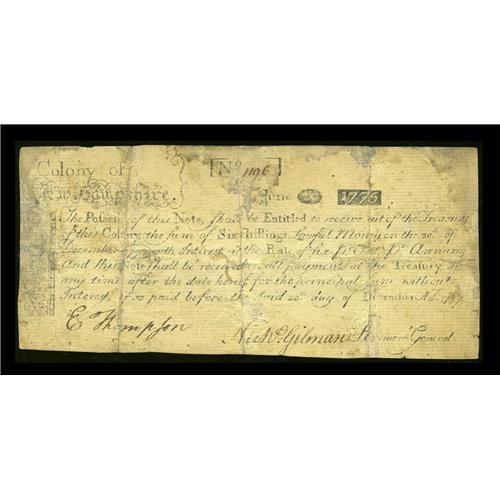 Colony of
New Hampshire,
No 1196
June 20 1775
The Possessor of this Note, shall be Entitled to receive out of the Treasury
of this Colony, the sum of Six Shillings Lawful Money, on the 20th of
December with Interest, at the Rate of six Pr Cent Pr Annum
And this Note shall be received in all payments at the Treasury, at
any time after the date hereof for the principal sum without
Interest, if so paid before the said 20th day of December
E Thompson
Nichs. Gilman Receiver General.